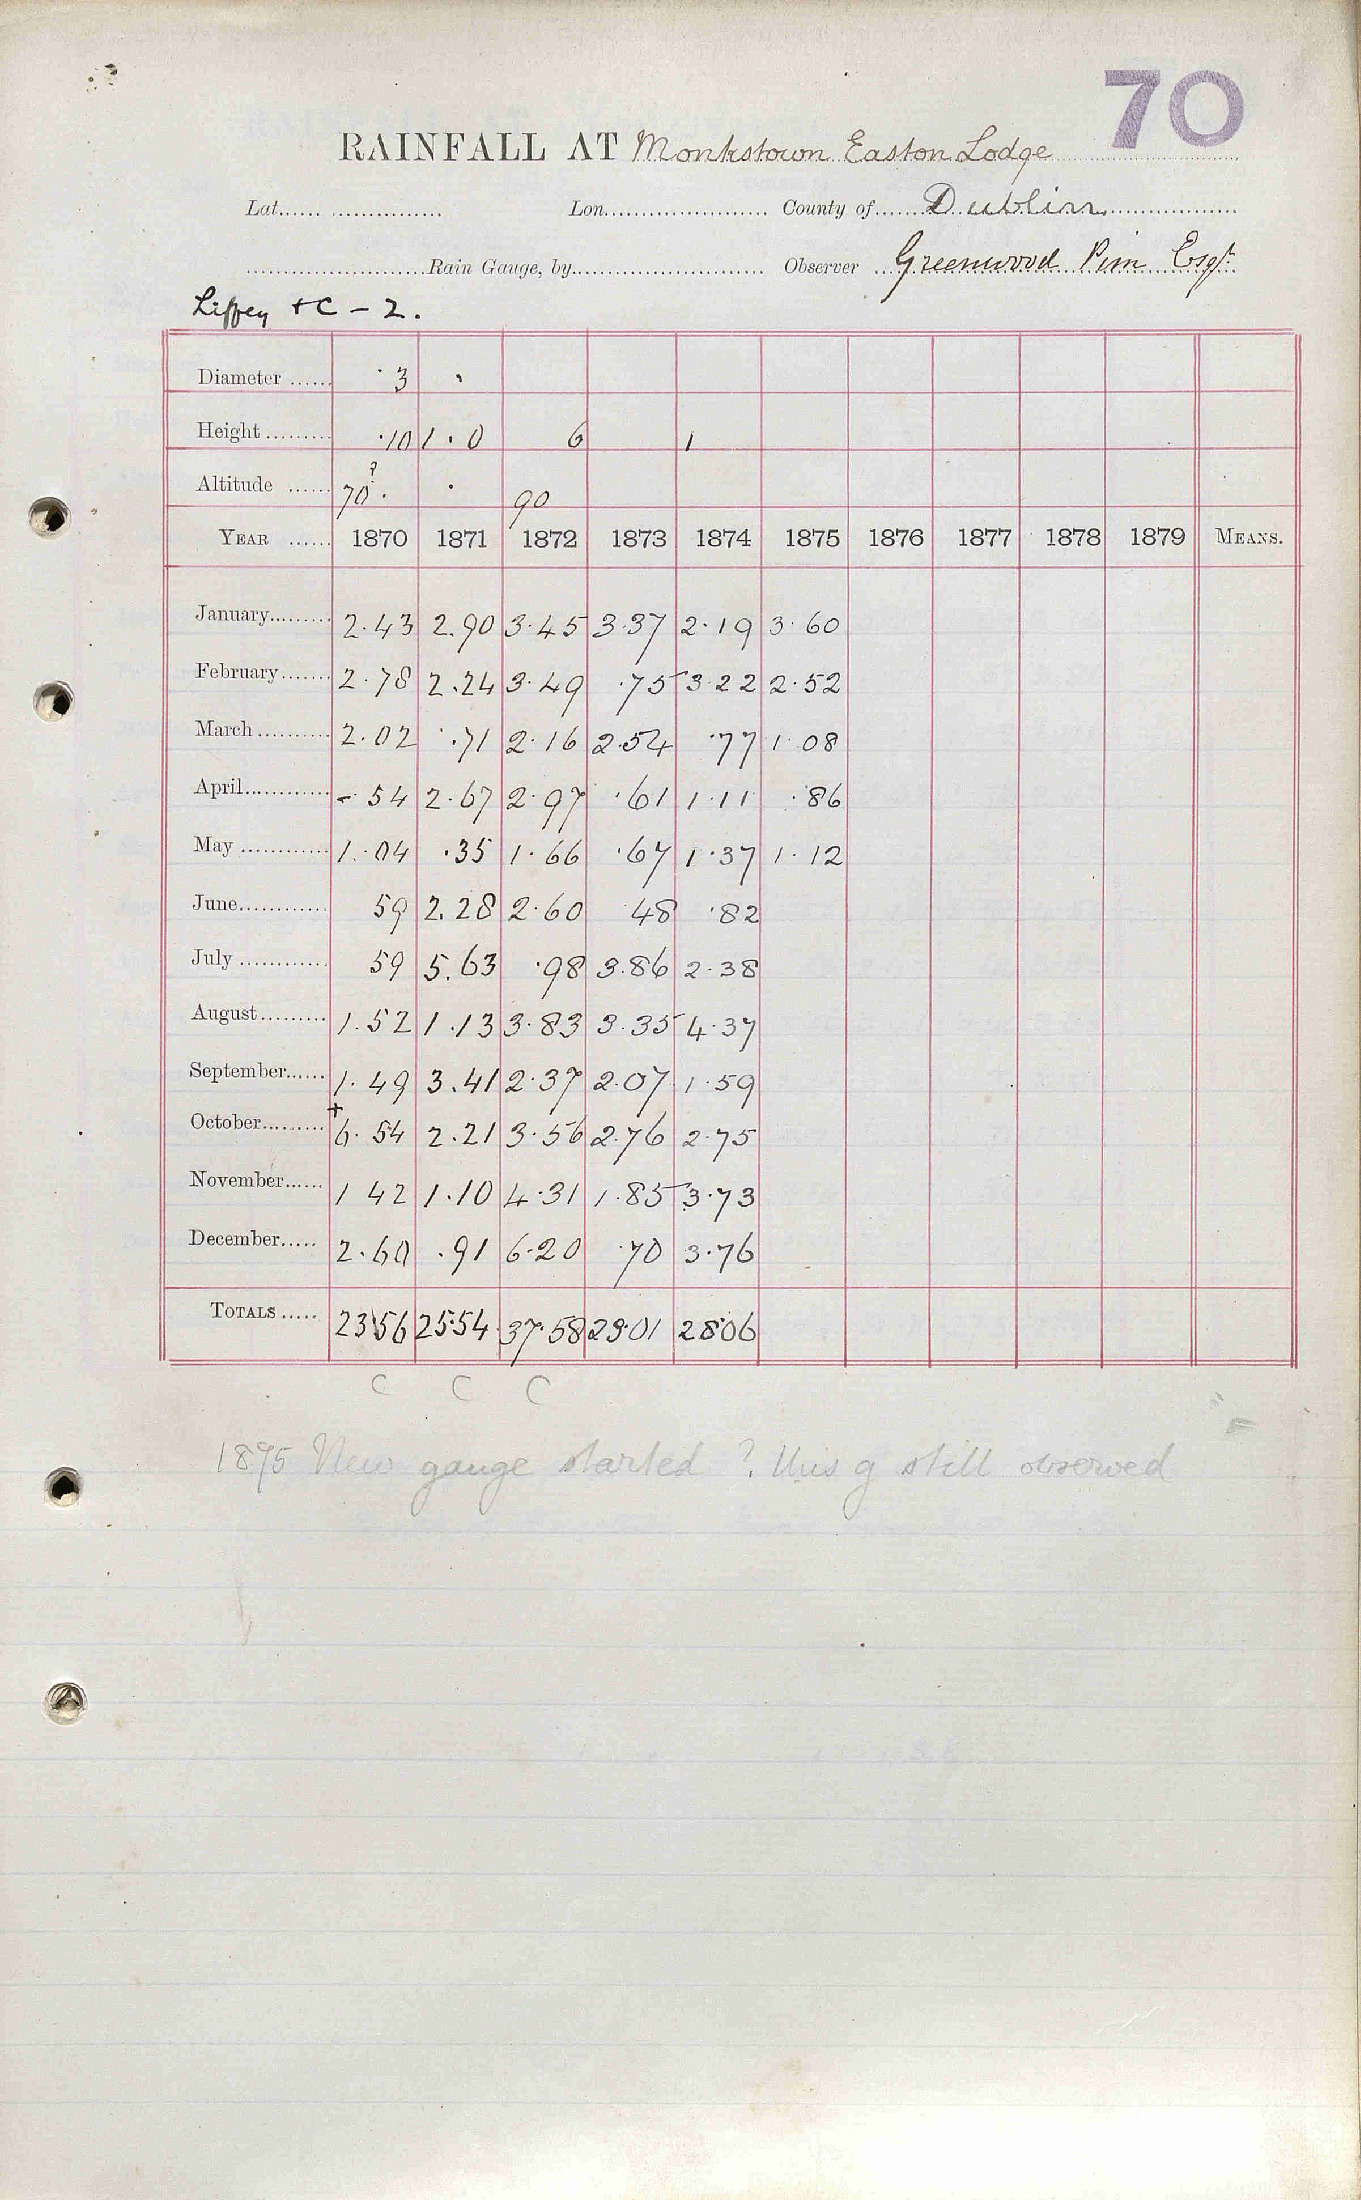 70
RAINFALL AT Monkstown Easton Lodge
Lat. Lon. County of Dublin
Rain Gauge, by Observer Greenwood Pim Esqr.
Liffey + C - 2.
Diameter 3
Height ·10 1·0 6 1
Altitude 70? 90
YEAR 1870 1871 1872 1873 1874 1875 1876 1877 1878 1879 MEANS.
January 2·43 2.90 3·45 3·37 2·19 3·60
February 2·78 2.24 3·49 ·75 3·22 2·52
March 2·02 ·71 2·16 2·54 ·77 1·08
April - 54 2·67 2·97 ·61 1·11 ·86
May 1·04 ·35 1·66 ·67 1·37 1·12
June 59 2.28 2·60 48 ·82
July 59 5.63 ·98 3·86 2·38
August 1·52 1·13 3·83 3·35 4·37
September 1·49 3.41 2·37 2·07 1·59
October + 6·54 2·21 3·56 2·76 2·75
November 1 42 1·10 4·31 1·85 3·73
December 2·60 ·91 6·20 ·70 3·76
TOTALS 23 56 25·54 37·58 23·01 28·06
C C C
1875 New gauge started ? this g still observed